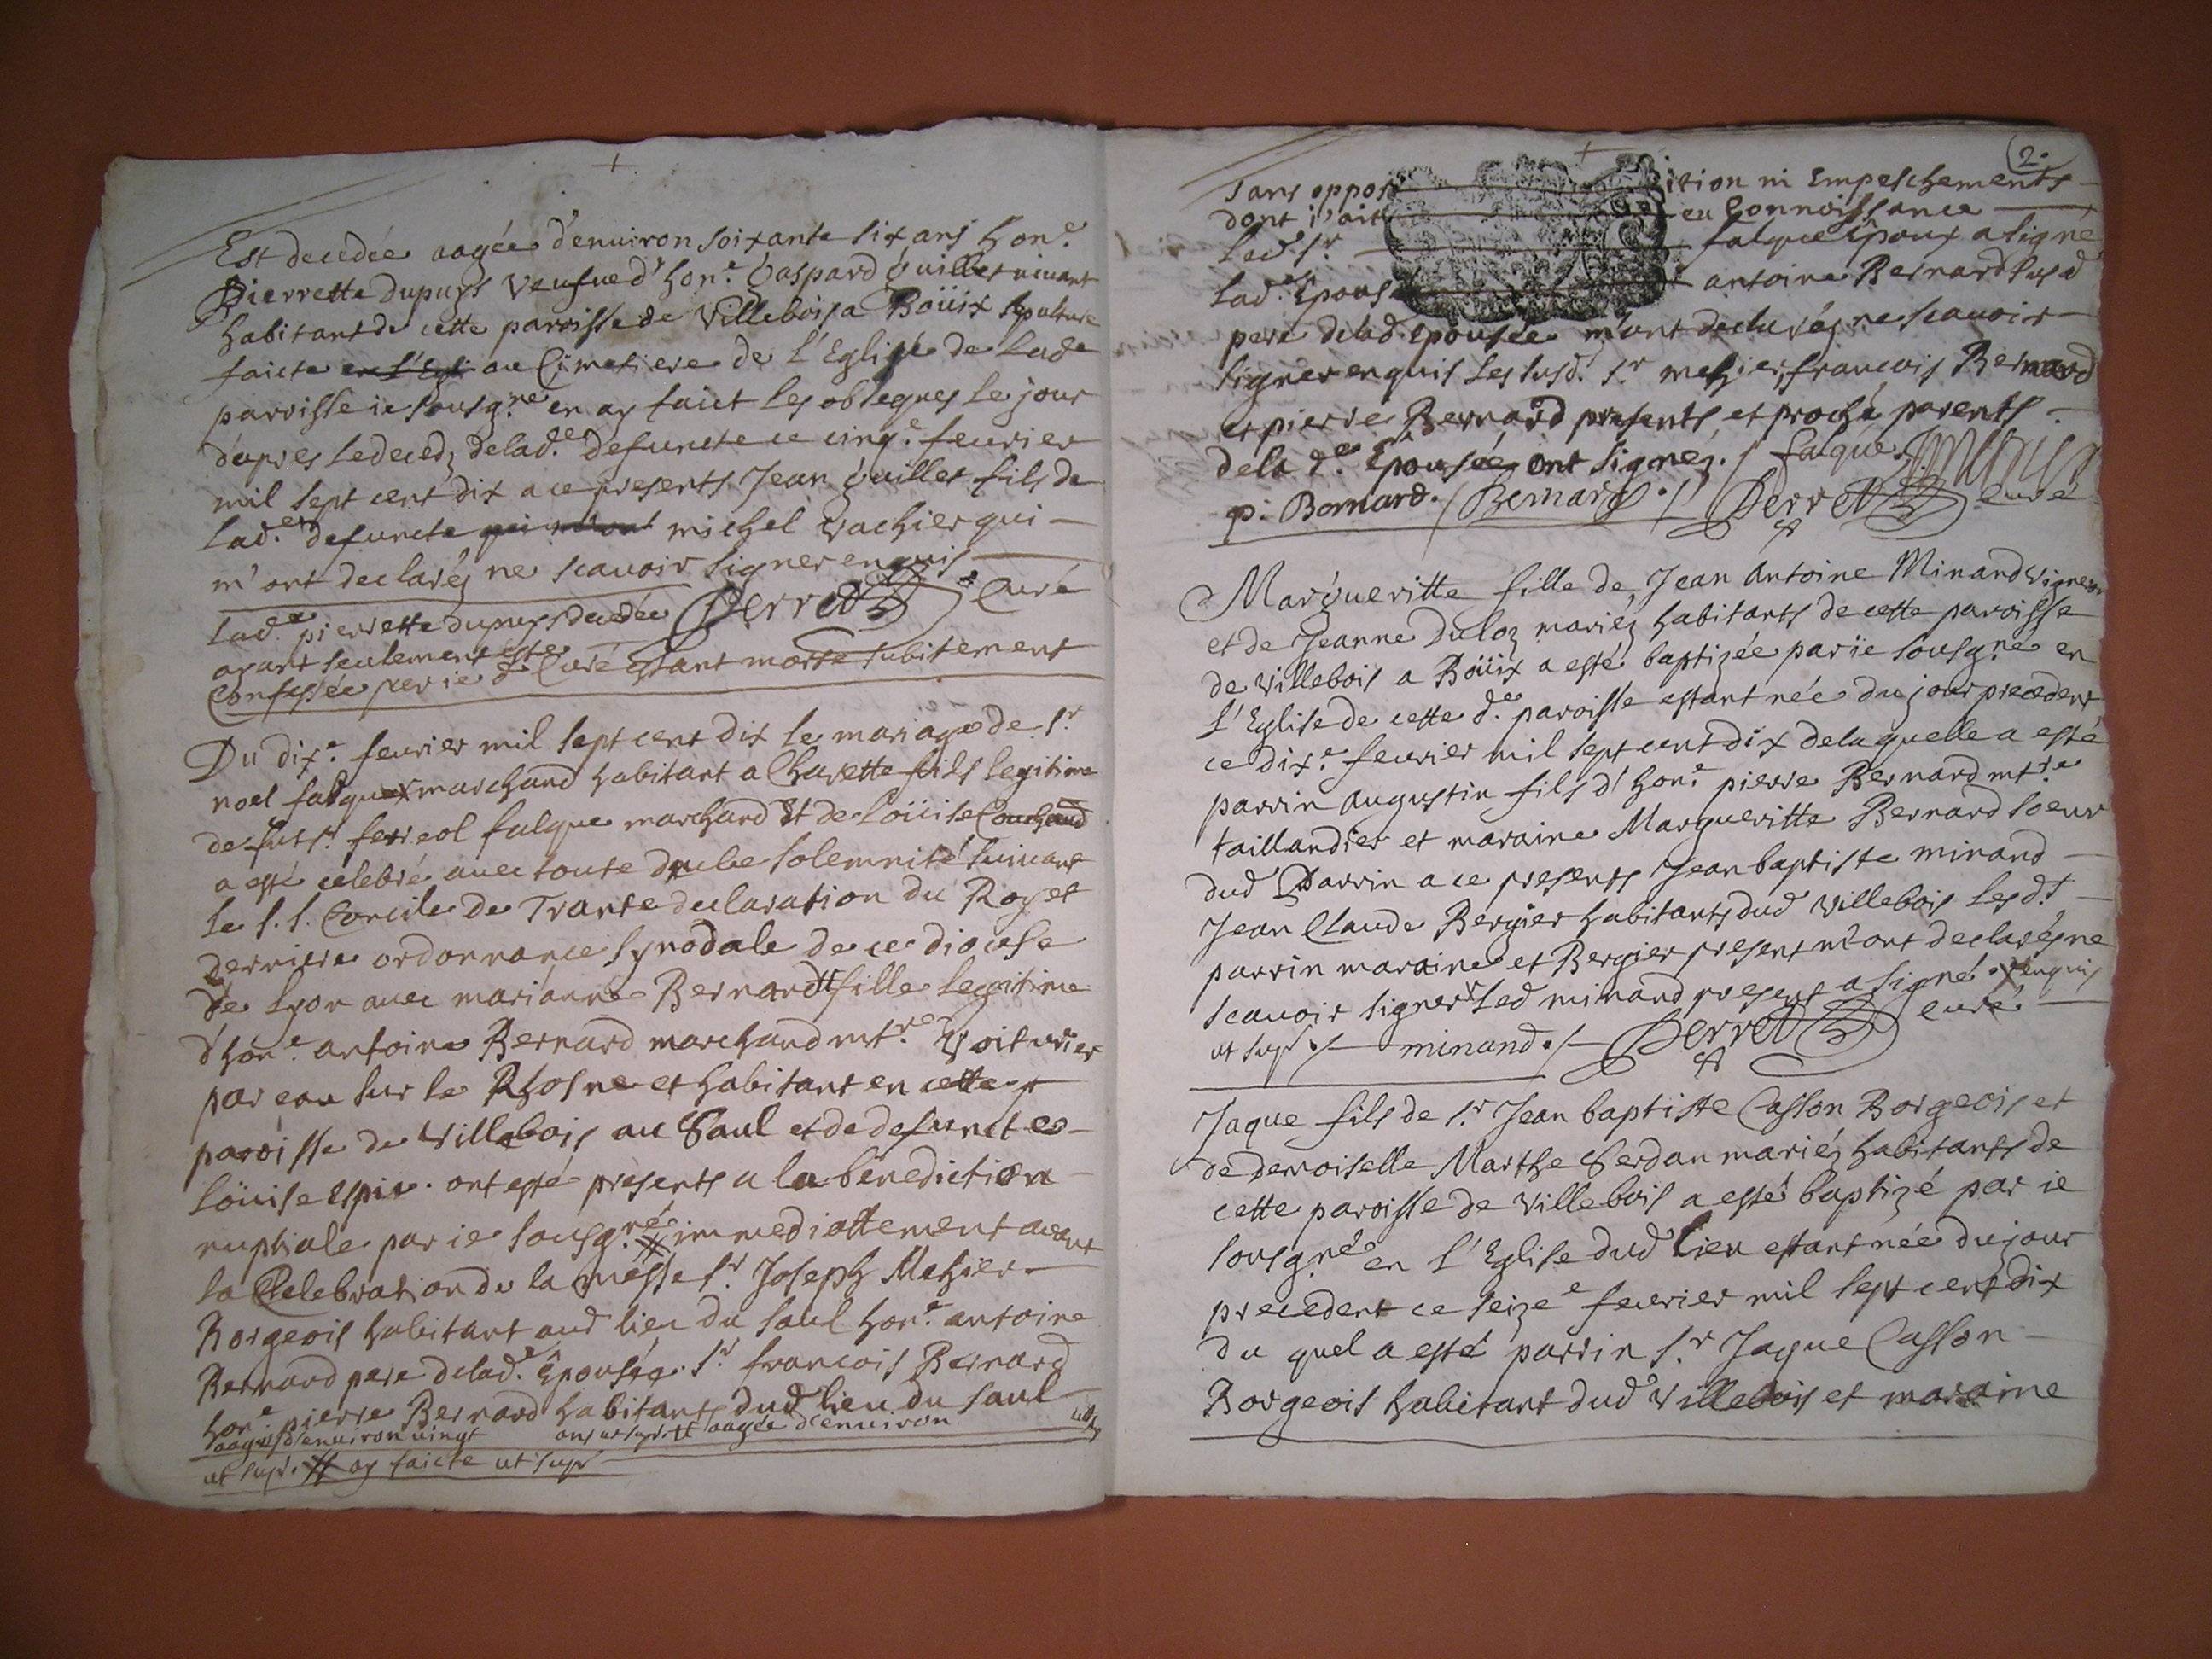 Est decedée aagée d'enuiron soixante six ans hon.e
Pierrette dupuys veufue d'hon.e Gaspard Guillet viuant
habitant de cette paroisse de Villebois a Boüix sepulture
faicte en l'Egli au Cimetiere de l'Eglise de lad.e
paroisse ie sousg.né en ay faict les obseques le jour
d'apres le decedz de lad.e defuncte ce cinq.e feurier
mil sept cent dix a ce presents Jean Guillet fils de
lad.e defuncte michel Vachier qui
m'ont declaréz ne scauoir signer enquis
lad.e pierrette dupuys decedée Perret Curé
ayant seulement esté
Confessée par ie d. Curé estant morte subitement
Du dix.e feurier mil sept cent dix le mariage de s.r
noel falque marchand habitant a Charette fils legitime
de fut s.r ferreol falque marchand et de Loüise Couchaud
a esté celebré auec toute dube solemnité suiuant
le s.s. Concile de Trante declaration du Roy et
derniere ordonnance synodale de ce diocese
de lyon auec marianne Bernard fille legitime
d'hon.e antoine Bernard marchand mt.re Voiturier
par eau sur le Rhosne et habitant en cette
paroisse de Villebois au Saul et de defuncte
Loüise Espie. ont esté presents a la benediction
nuptiale par ie sousg.né immediattement auant
la Celebration de la messe s.r Joseph Mehier
Borgeois habitant aud lieu du saul hon.e antoine
Bernard pere delad.e Epousée. s.r francois Bernard
hon.e pierre Bernard habitants dud lieu du saul
aagés d'enuiron vingt ans ut supr. aagée d'enuiron
ut supr. ay faicte ut supr
2.
sans opposition ni Empeschements
dont j'ait eu Connoissance
Led. s.r falque Epoux a signé
lad.e Epousée antoine Bernard susd
pere delad. epousée m'ont declaréz ne scauoir
signer enquis les susd. s.r mehier, francois Bernard
et pierre Bernard presents et proche parents
dela d.e Epousée ont signez. / falque
p. Bernard. / Bernard. / Perret Curé
Margueritte fille de Jean Antoine Minand Vigneron
et de Jeanne duloz mariéz habitants de cette paroisse
de villebois a Boüix a esté baptizée par ie sousg.né en
l'Eglise de cette d.e paroisse estant née du jour precedent
ce dix.e feurier mil sept cent dix de laquelle a esté
parrin Augustin fils d'hon.e pierre Bernard mt.re
taillandier et maraine Margueritte Bernard soeur
dud Parrin a ce presents Jean baptiste minand
Jean Claude Bergier habitants dud villebois lesd.t
parrin maraine et Bergier present m'ont declaréz ne
scauoir signer Led minand present a signé. enquis
ut supr. / minand. / Perret curé
Jaque fils de s.r Jean baptiste Casson Borgeois et
de demoiselle Marthe Serdan mariéz habitants de
cette paroisse de villebois a esté baptizé par ie
sousg.né en l'Eglise dud lieu estant née du jour
precedent ce seize.e feurier mil sept cent dix
du quel a esté parrin s.r Jaque Casson
Borgeois habitant dud Villebois et maraine